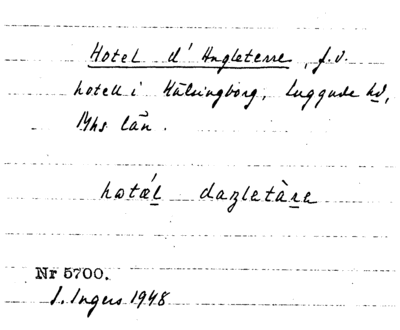 Hotel d'Angleterre, f.d.
hotell i Hälsingborg, Luggude hd,
Mhs län.
hotǽl daŋletàre
Nr 5700.
I. Ingers 1948